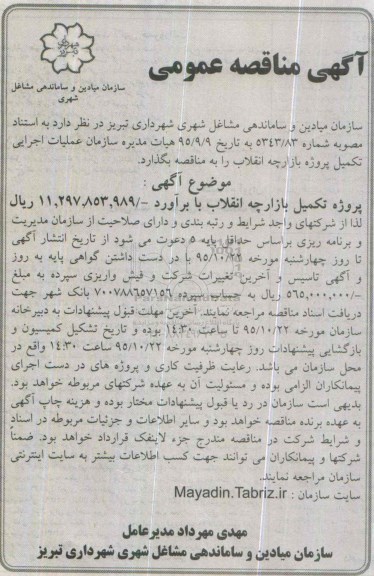 آگهی مناقصه عمومی
سازمان میادین و ساماندهی مشاغل
شهری
سازمان میادین و ساماندهی مشاغل شهری شهرداری تبریز در نظر دارد به استناد
مصوبه شماره ۵۳۴۳/۸۳ به تاریخ ۹۵/۹/۹ هیات مدیره سازمان عملیات اجرایی
تکمیل پروژه بازارچه انقلاب را به مناقصه بگذارد.
موضوع آگهی :
پروژه تکمیل بازارچه انقلاب با برآورد -/۱۱,۲۹۷,۸۵۳,۹۸۹ ریال
لذا از شرکتهای واجد شرایط و رتبه بندی و دارای صلاحیت از سازمان مدیریت
و برنامه ریزی براساس حداقل پایه ۵ دعوت می شود از تاریخ انتشار آگهی
تا روز چهارشنبه مورخه ۹۵/۱۰/۲۲ با در دست داشتن گواهی پایه به روز
و آگهی تاسیس و آخرین تغییرات شرکت و فیش واریزی سپرده به مبلغ
-/۵۶۵,۰۰۰,۰۰۰ ریال به حساب سپرده ۷۰۰۷۸۸۶۵۷۱۵۶ بانک شهر جهت
دریافت اسناد مناقصه مراجعه نمایند. آخرین مهلت قبول پیشنهادات به دبیرخانه
سازمان مورخه ۹۵/۱۰/۲۲ تا ساعت ۱۴:۳۰ بوده و تاریخ تشکیل کمیسیون و
بازگشایی پیشنهادات روز چهارشنبه مورخه ۹۵/۱۰/۲۲ ساعت ۱۴:۳۰ واقع در
محل سازمان می باشد. رعایت ظرفیت کاری و پروژه های در دست اجرای
پیمانکاران الزامی بوده و مسئولیت آن به عهده شرکتهای مربوطه خواهد بود.
بدیهی است سازمان در رد یا قبول پیشنهادات مختار بوده و هزینه چاپ آگهی
به عهده برنده مناقصه خواهد بود و سایر اطلاعات و جزئیات مربوطه در اسناد
و شرایط شرکت در مناقصه مندرج جزء لاینفک قرارداد خواهد بود. ضمناً
شرکتها و پیمانکاران می توانند جهت کسب اطلاعات بیشتر به سایت اینترنتی
سازمان مراجعه نمایند.
سایت سازمان : Mayadin.Tabriz.ir
مهدی مهرداد مدیرعامل
سازمان میادین و ساماندهی مشاغل شهری شهرداری تبریز